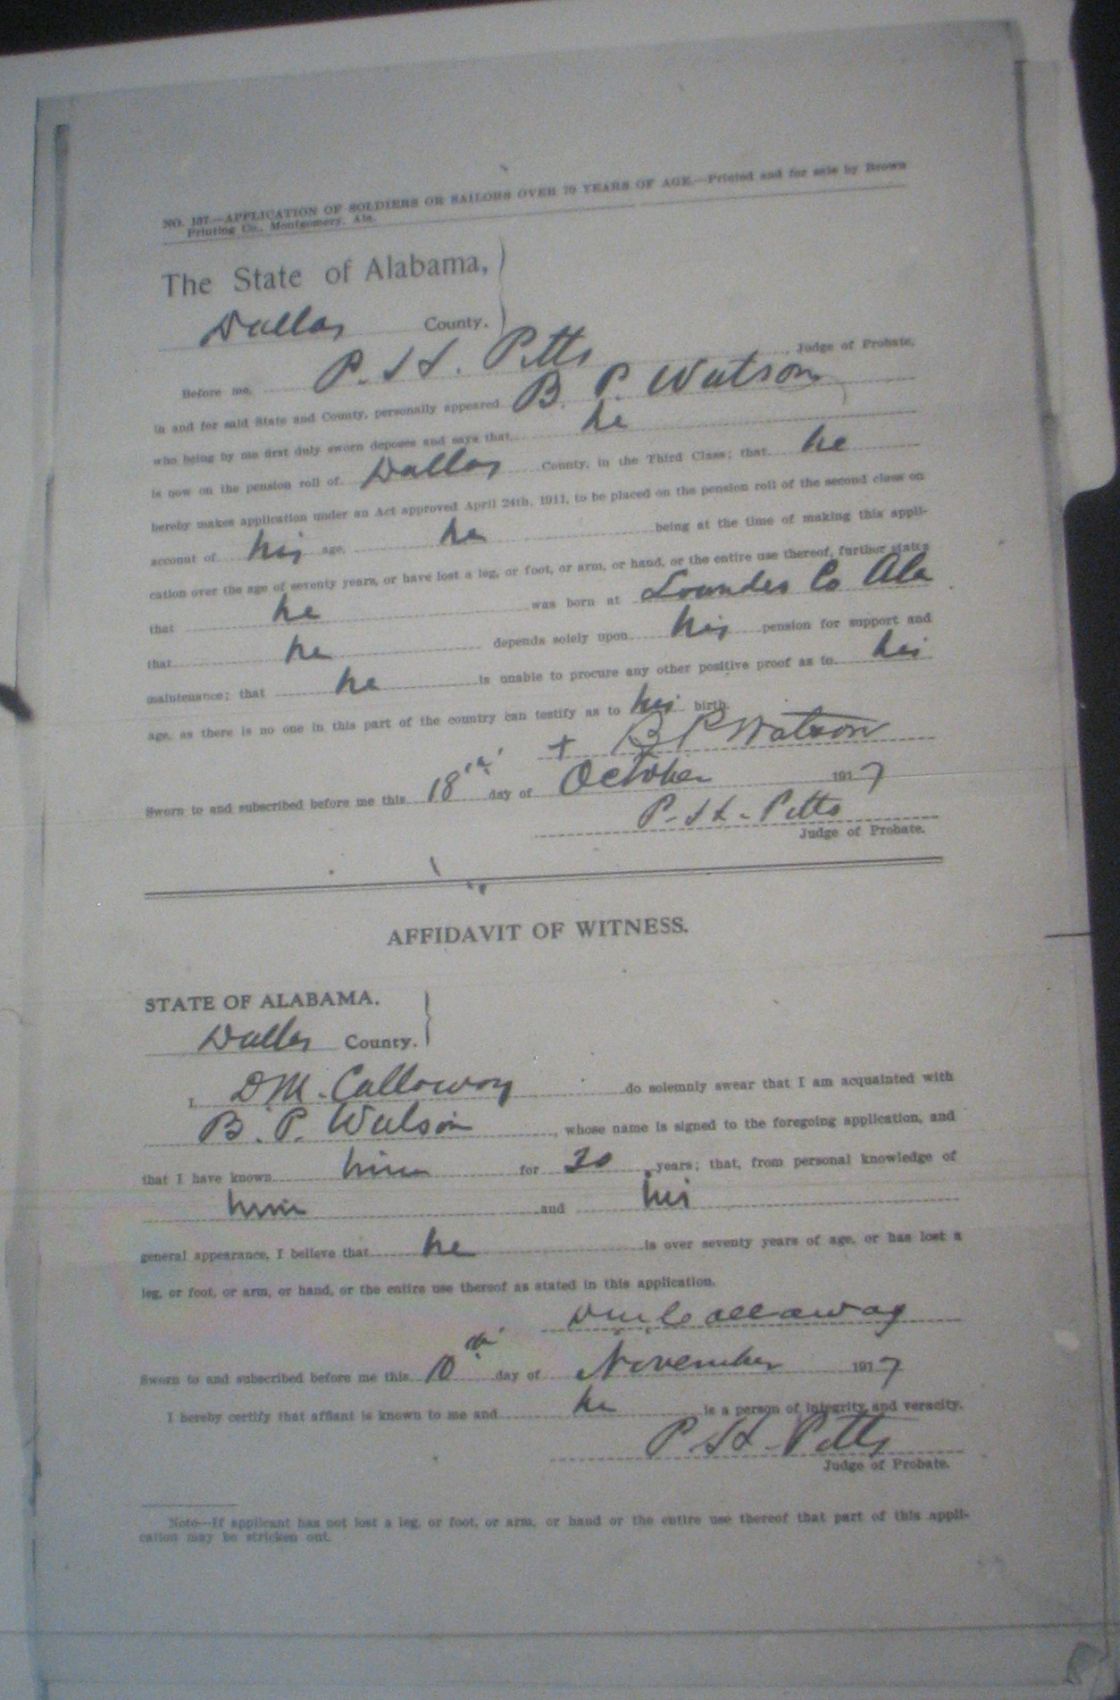 NO. 187.—APPLICATION OF SOLDIERS OR SAILORS OVER 70 YEARS OF AGE.—Printed and for sale by Brown
Printing Co., Montgomery, Ala.
The State of Alabama,
Dallas County.
Before me, P. H. Pitts, Judge of Probate,
in and for said State and County, personally appeared B. P. Watson
who being by me first duly sworn deposes and says that he
is now on the pension roll of Dallas County, in the Third Class; that he
hereby makes application under an Act approved April 24th, 1911, to be placed on the pension roll of the second class on
account of his age, he being at the time of making this appli-
cation over the age of seventy years, or have lost a leg, or foot, or arm, or hand, or the entire use thereof, further states
that he was born at Lowndes Co Ala
that he depends solely upon his pension for support and
maintenance; that he is unable to procure any other positive proof as to his
age, as there is no one in this part of the country can testify as to his birth.
+ B P Watson
Sworn to and subscribed before me this 18th day of October 1917
P. H. Pitts
Judge of Probate.
AFFIDAVIT OF WITNESS.
STATE OF ALABAMA.
Dallas County.
I, D M. Calloway do solemnly swear that I am acquainted with
B. P. Watson, whose name is signed to the foregoing application, and
that I have known him for years; that, from personal knowledge of
him and his
general appearance, I believe that he is over seventy years of age, or has lost a
leg, or foot, or arm, or hand, or the entire use thereof as stated in this application.
DM Callaway
Sworn to and subscribed before me this 10th day of November 1917
I hereby certify that affiant is known to me and he is a person of integrity and veracity.
P H Pitts
Judge of Probate.
Note—If applicant has not lost a leg, or foot, or arm, or hand or the entire use thereof that part of this appli-
cation may be stricken out.